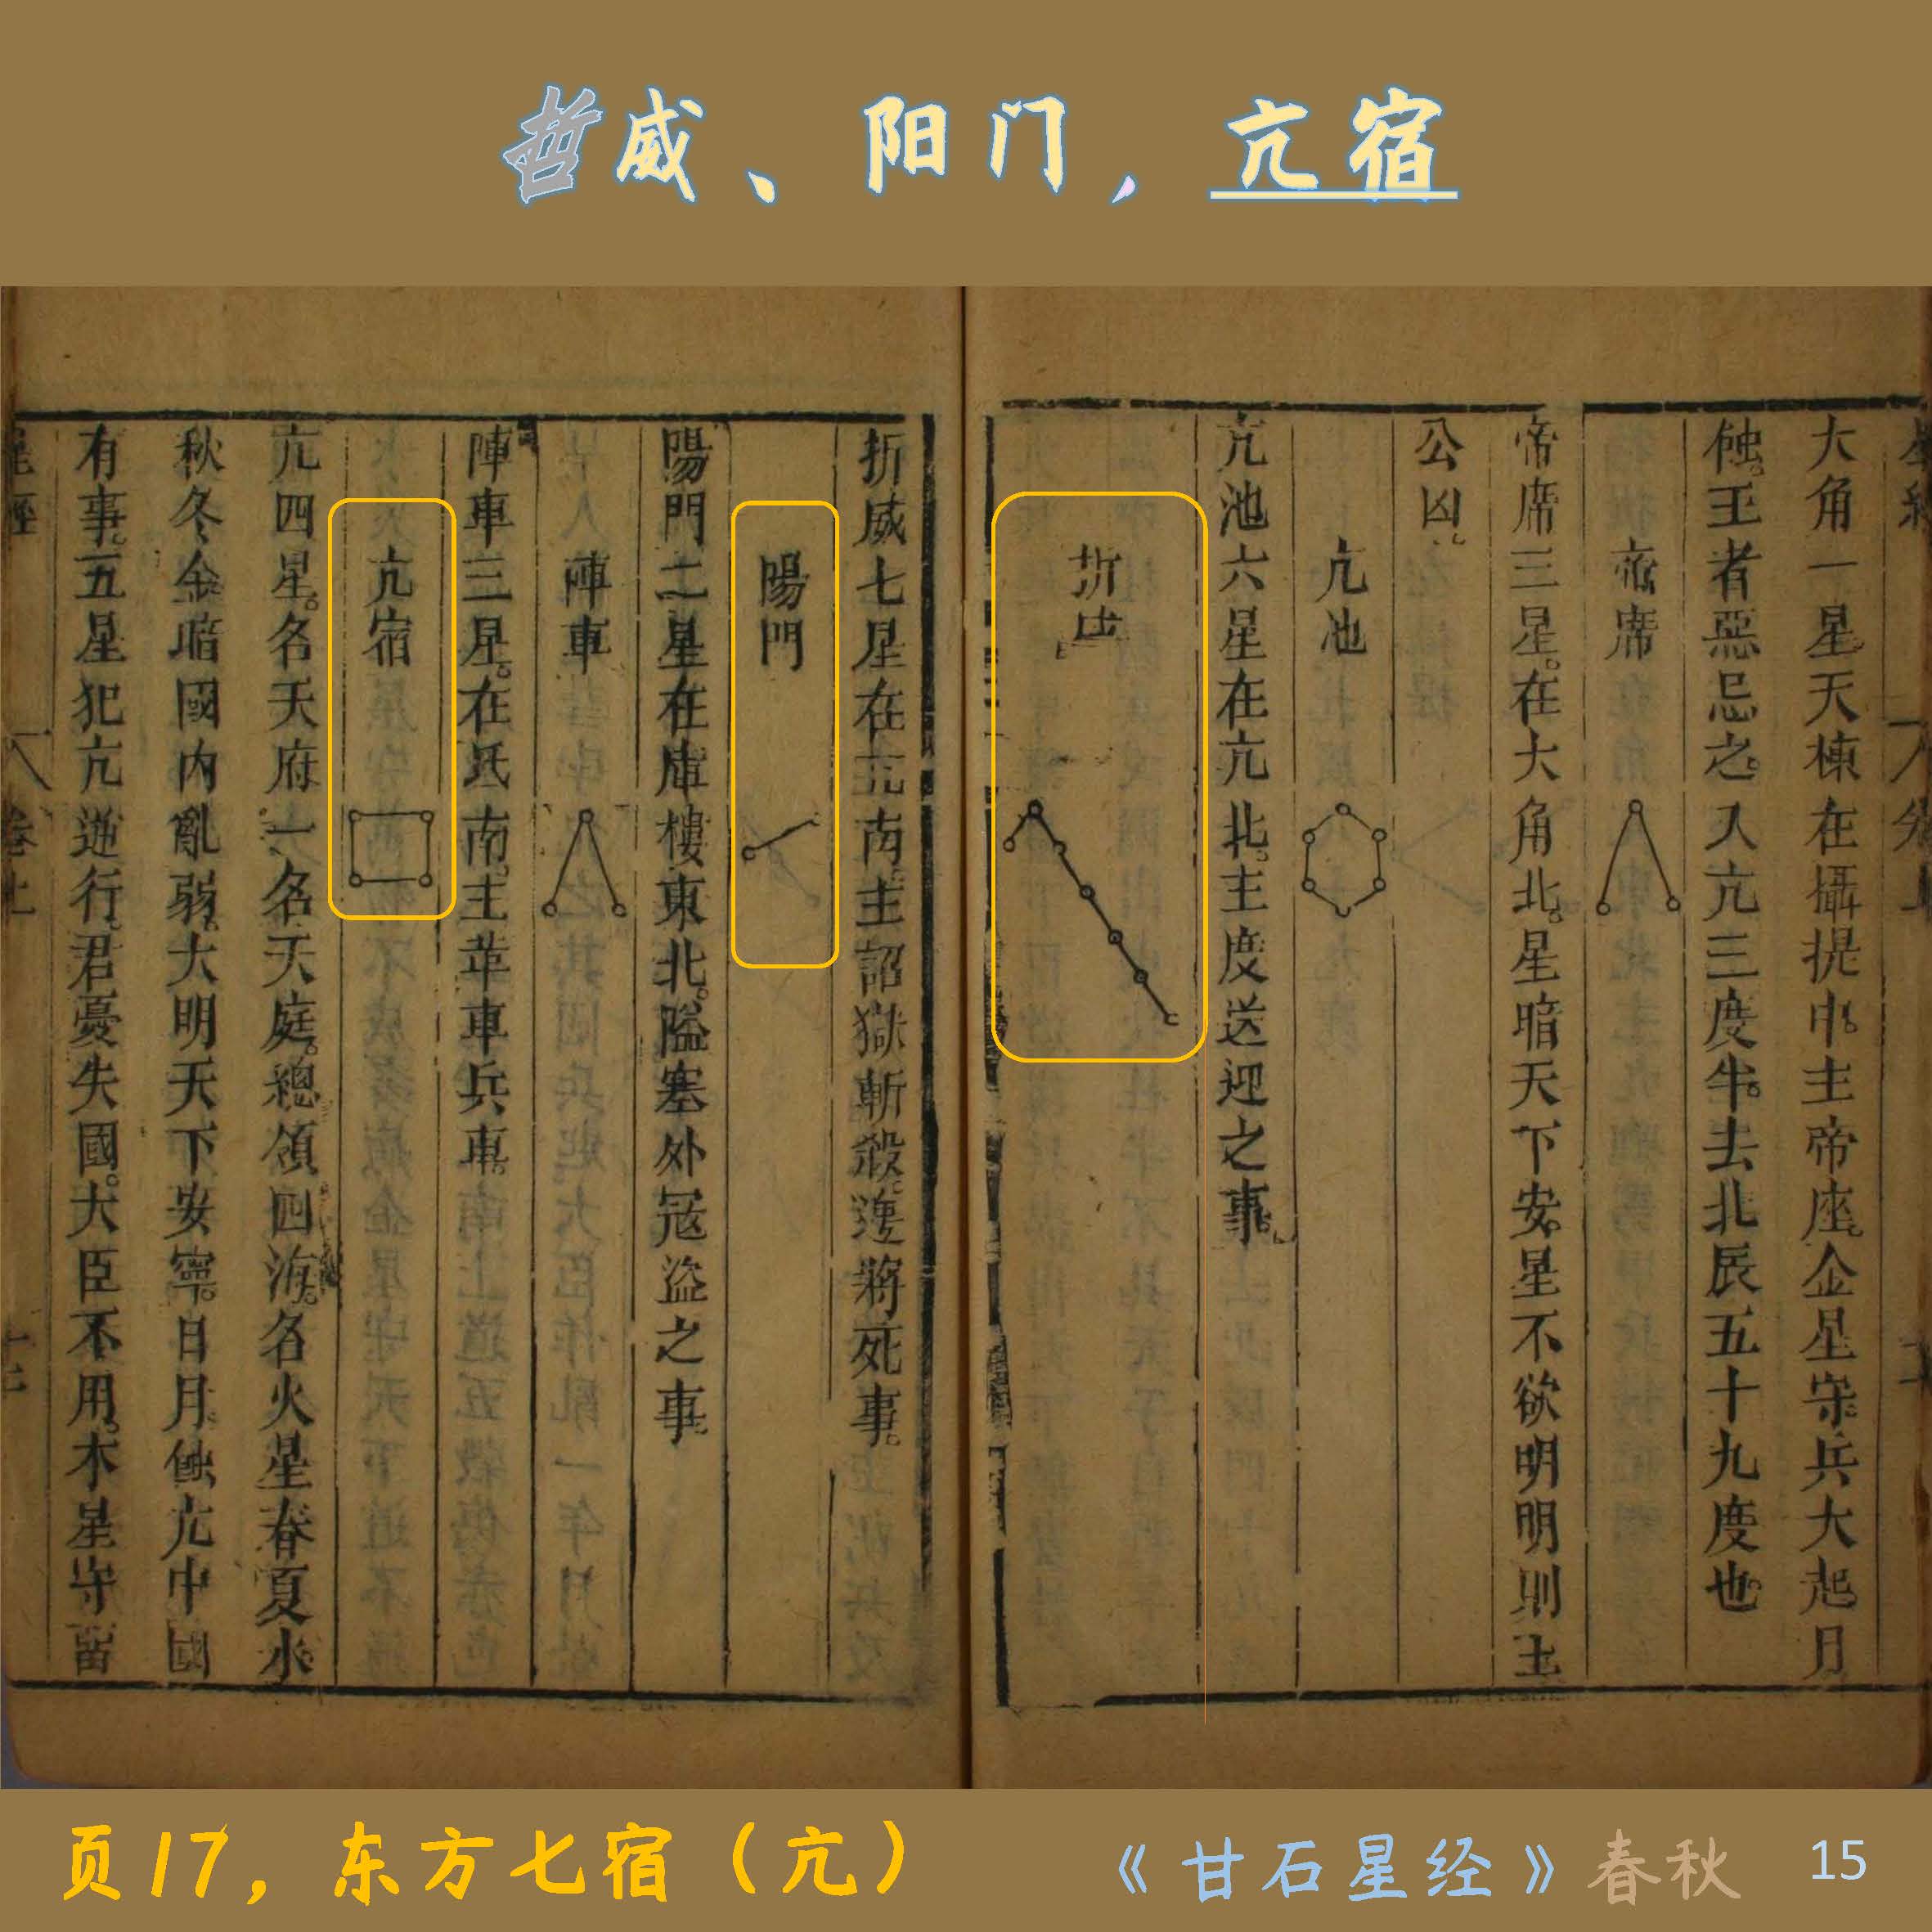 哲威、阳门，亢宿
大角一星天棟在攝提中主帝座金星守兵大起月
蝕王者惡忌之入亢三度半去北辰五十九度也
帝席
帝席三星在大角北星暗天下安星不欲明明則王
公凶
亢池
亢池六星在亢北主度送迎之事
折
折威七星在亢南主詔獄斬殺邊將死事
陽門
陽門二星在庫樓東北隘塞外冦盜之事
陣車
陣車三星在氐南主革車兵車
亢宿
亢四星名天府一名天庭總領四海名火星春夏水
秋冬金暗國內亂弱大明天下安寧日月蝕亢中國
有事五星犯亢逆行君憂失國大臣不用木星守留
页17，东方七宿（亢）
《甘石星经》春秋 15